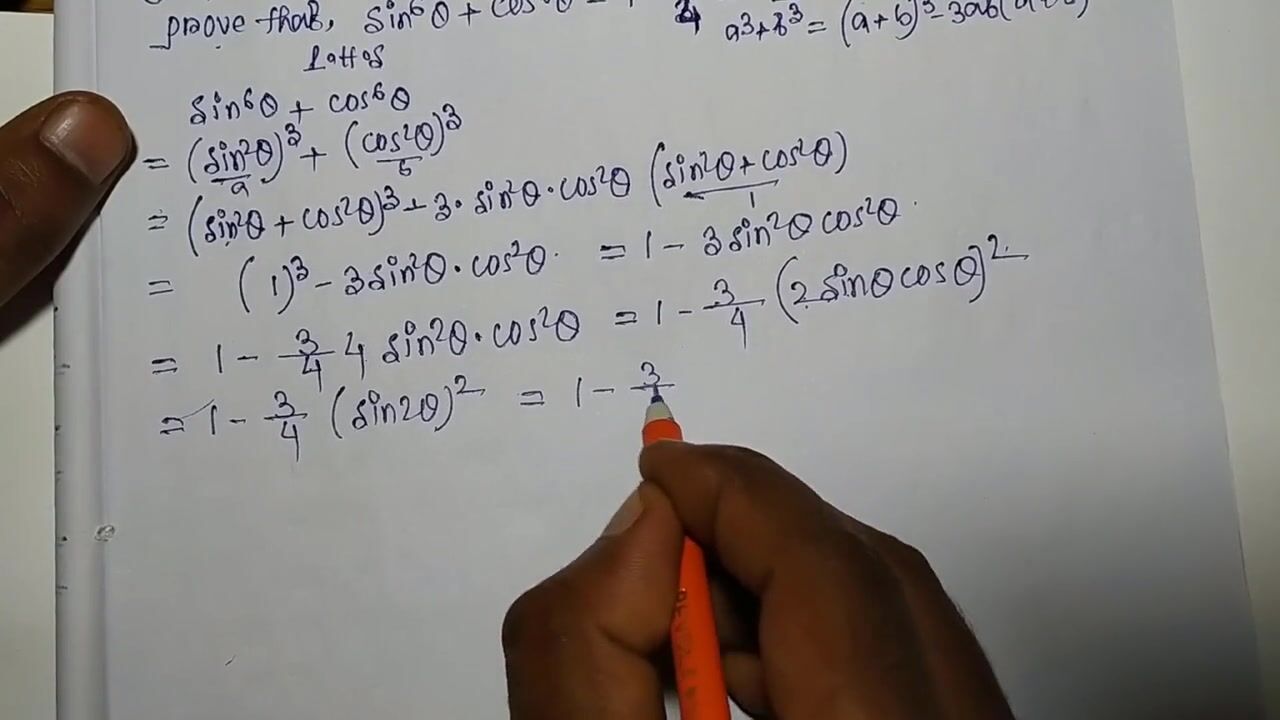 prove that, sin⁶θ + cos⁶θ =
a³+b³ = (a+b)³ - 3ab(a+b)
sin⁶θ + cos⁶θ
= (sin²θ)³ + (cos²θ)³
a b
= (sin²θ + cos²θ)³ - 3·sin²θ·cos²θ (sin²θ + cos²θ)
1
= (1)³ - 3sin²θ·cos²θ = 1 - 3sin²θcos²θ
= 1 - 3/4 4 sin²θ·cos²θ = 1 - 3/4 (2sinθcosθ)²
= 1 - 3/4 (sin2θ)² = 1 - 3